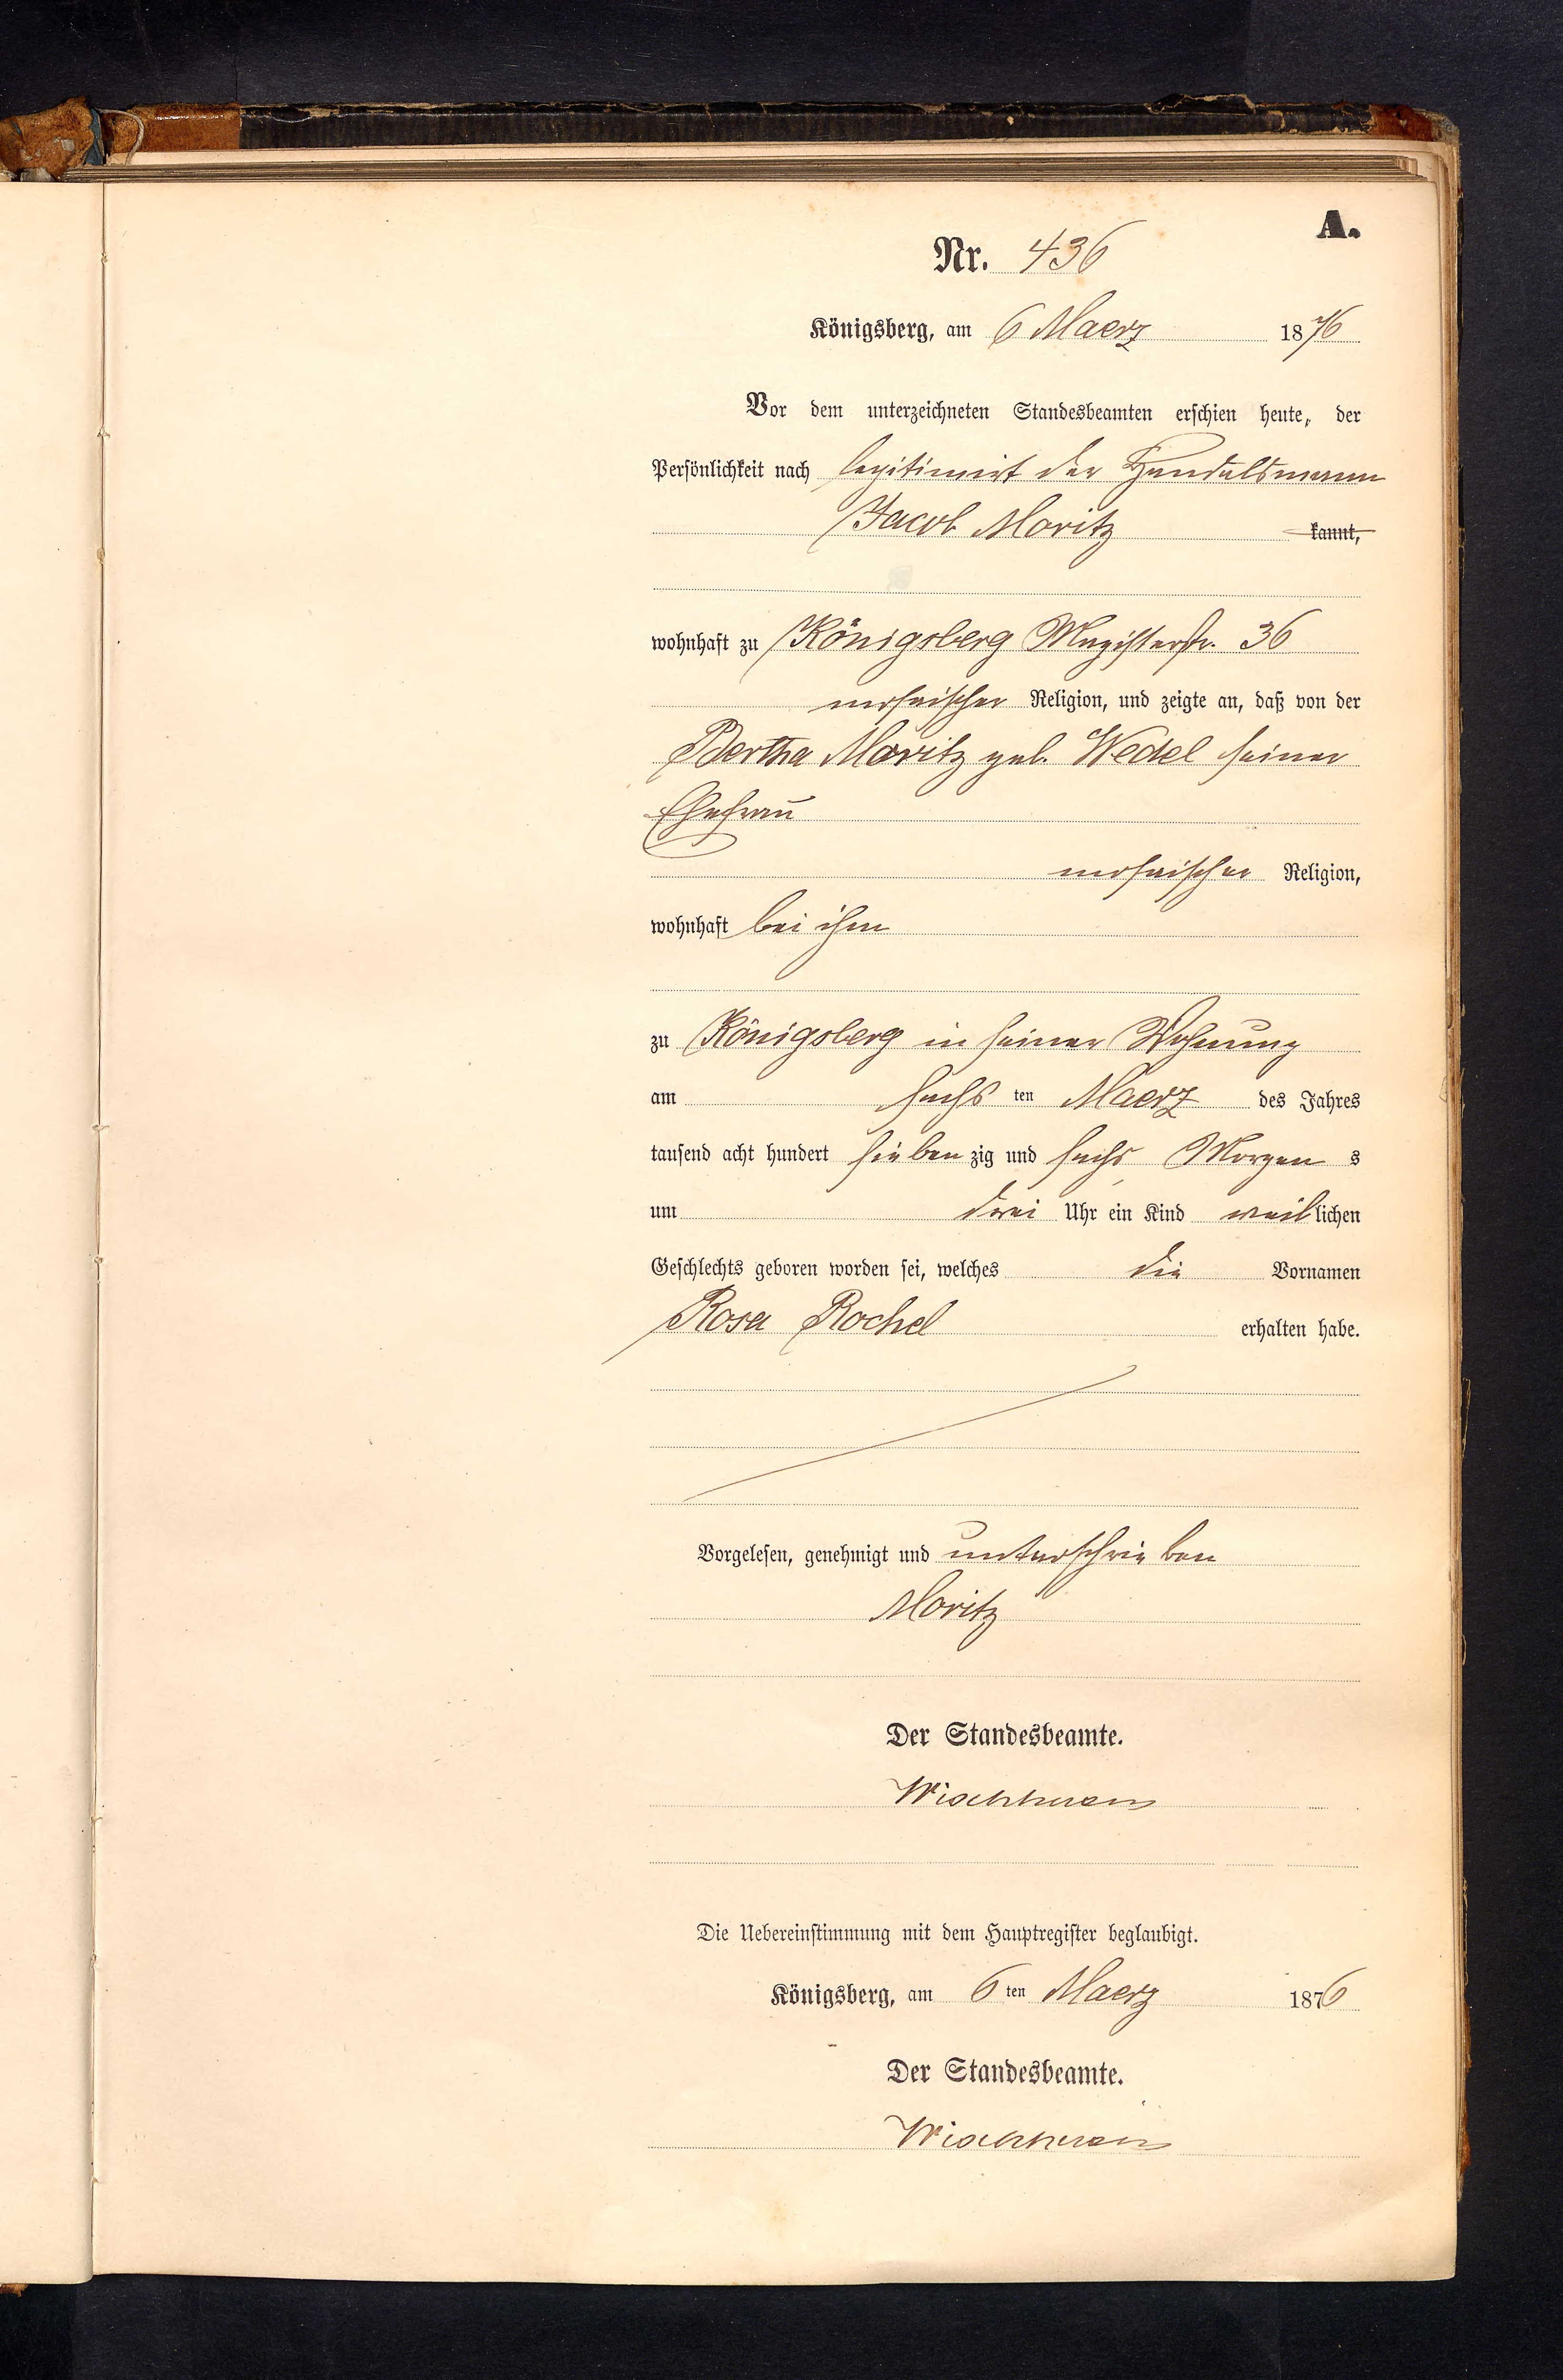 A.
Nr. 436
Königsberg, am 6 Maerz 1876
Vor dem unterzeichneten Standesbeamten erschien heute, der
Persönlichkeit nach legitimirt der Handelsmann
Jacob Moritz kannt,
wohnhaft zu Königsberg Magisterstr. 36
mosaischer Religion, und zeigte an, daß von der
Bertha Moritz geb. Wedel seiner
Ehefrau
mosaischer Religion,
wohnhaft bei ihm
zu Königsberg in seiner Wohnung
am sechs ten Maerz des Jahres
tausend acht hundert sieben zig und sechs Morgen s
um drei Uhr ein Kind weiblichen
Geschlechts geboren worden sei, welches die Vornamen
Rosa Rochel erhalten habe.
Vorgelesen, genehmigt und unterschrieben
Moritz
Der Standesbeamte.
Die Uebereinstimmung mit dem Hauptregister beglaubigt.
Königsberg, am 6 ten Maerz 1876
Der Standesbeamte.